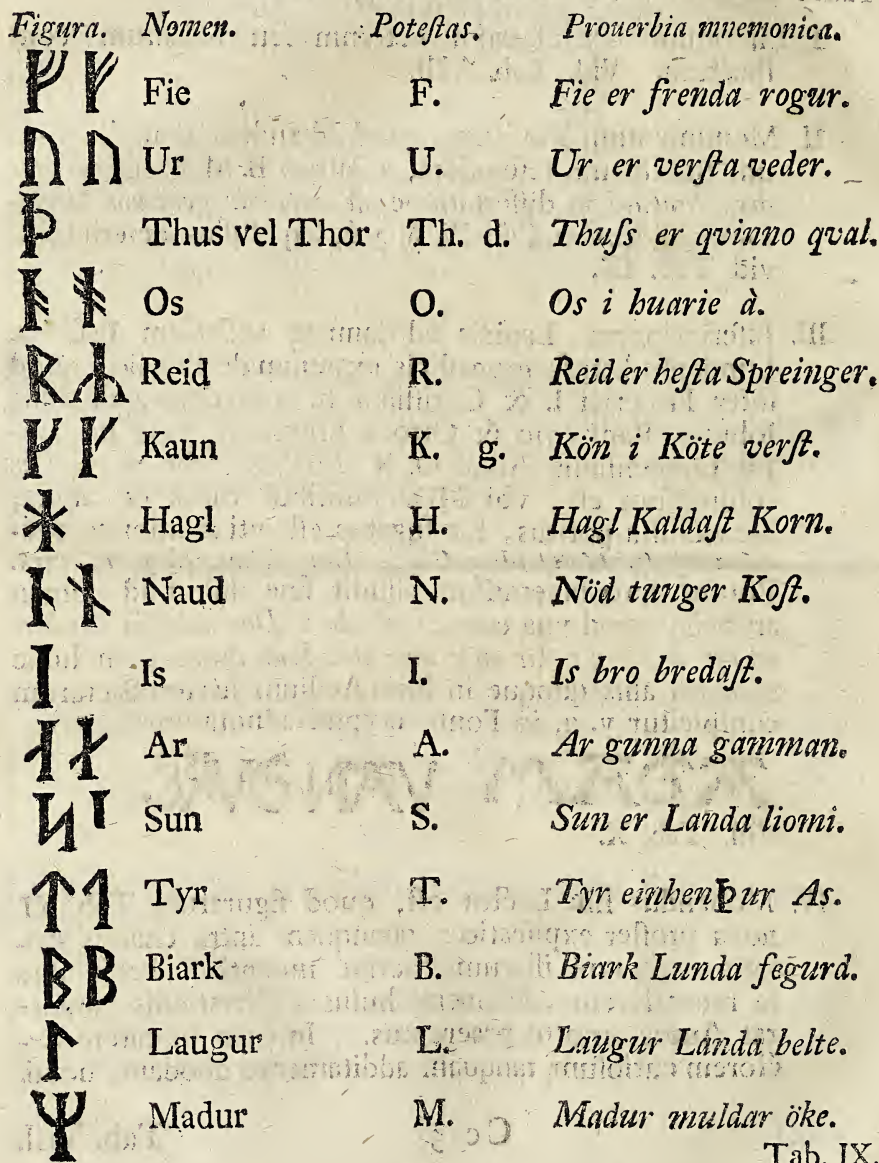 Figura. Nomen. Poteſtas. Prouerbia mnemonica.
ᚠ ᚠ Fie F. Fie er frenda rogur.
ᚢ ᚢ Ur U. Ur er verſta veder.
ᚦ Thus vel Thor Th. d. Thuſs er qvinno qval.
ᚬ ᚬ Os O. Os i huarie à.
ᚱ Reid R. Reid er heſta Spreinger.
ᚴ ᚴ Kaun K. g. Kön i Köte verſt.
ᚼ Hagl H. Hagl Kaldaſt Korn.
ᚿ ᚾ Naud N. Nöd tunger Koſt.
ᛁ Is I. Is bro bredaſt.
ᛆ ᛅ Ar A. Ar gunna gamman.
ᛋ ᛌ Sun S. Sun er Landa liomi.
ᛏ ᛐ Tyr T. Tyr einhenÞur As.
ᛒ ᛒ Biark B. Biark Lunda fegurd.
ᛚ Laugur L. Laugur Landa belte.
ᛘ Madur M. Madur muldar öke.
Tab. IX.